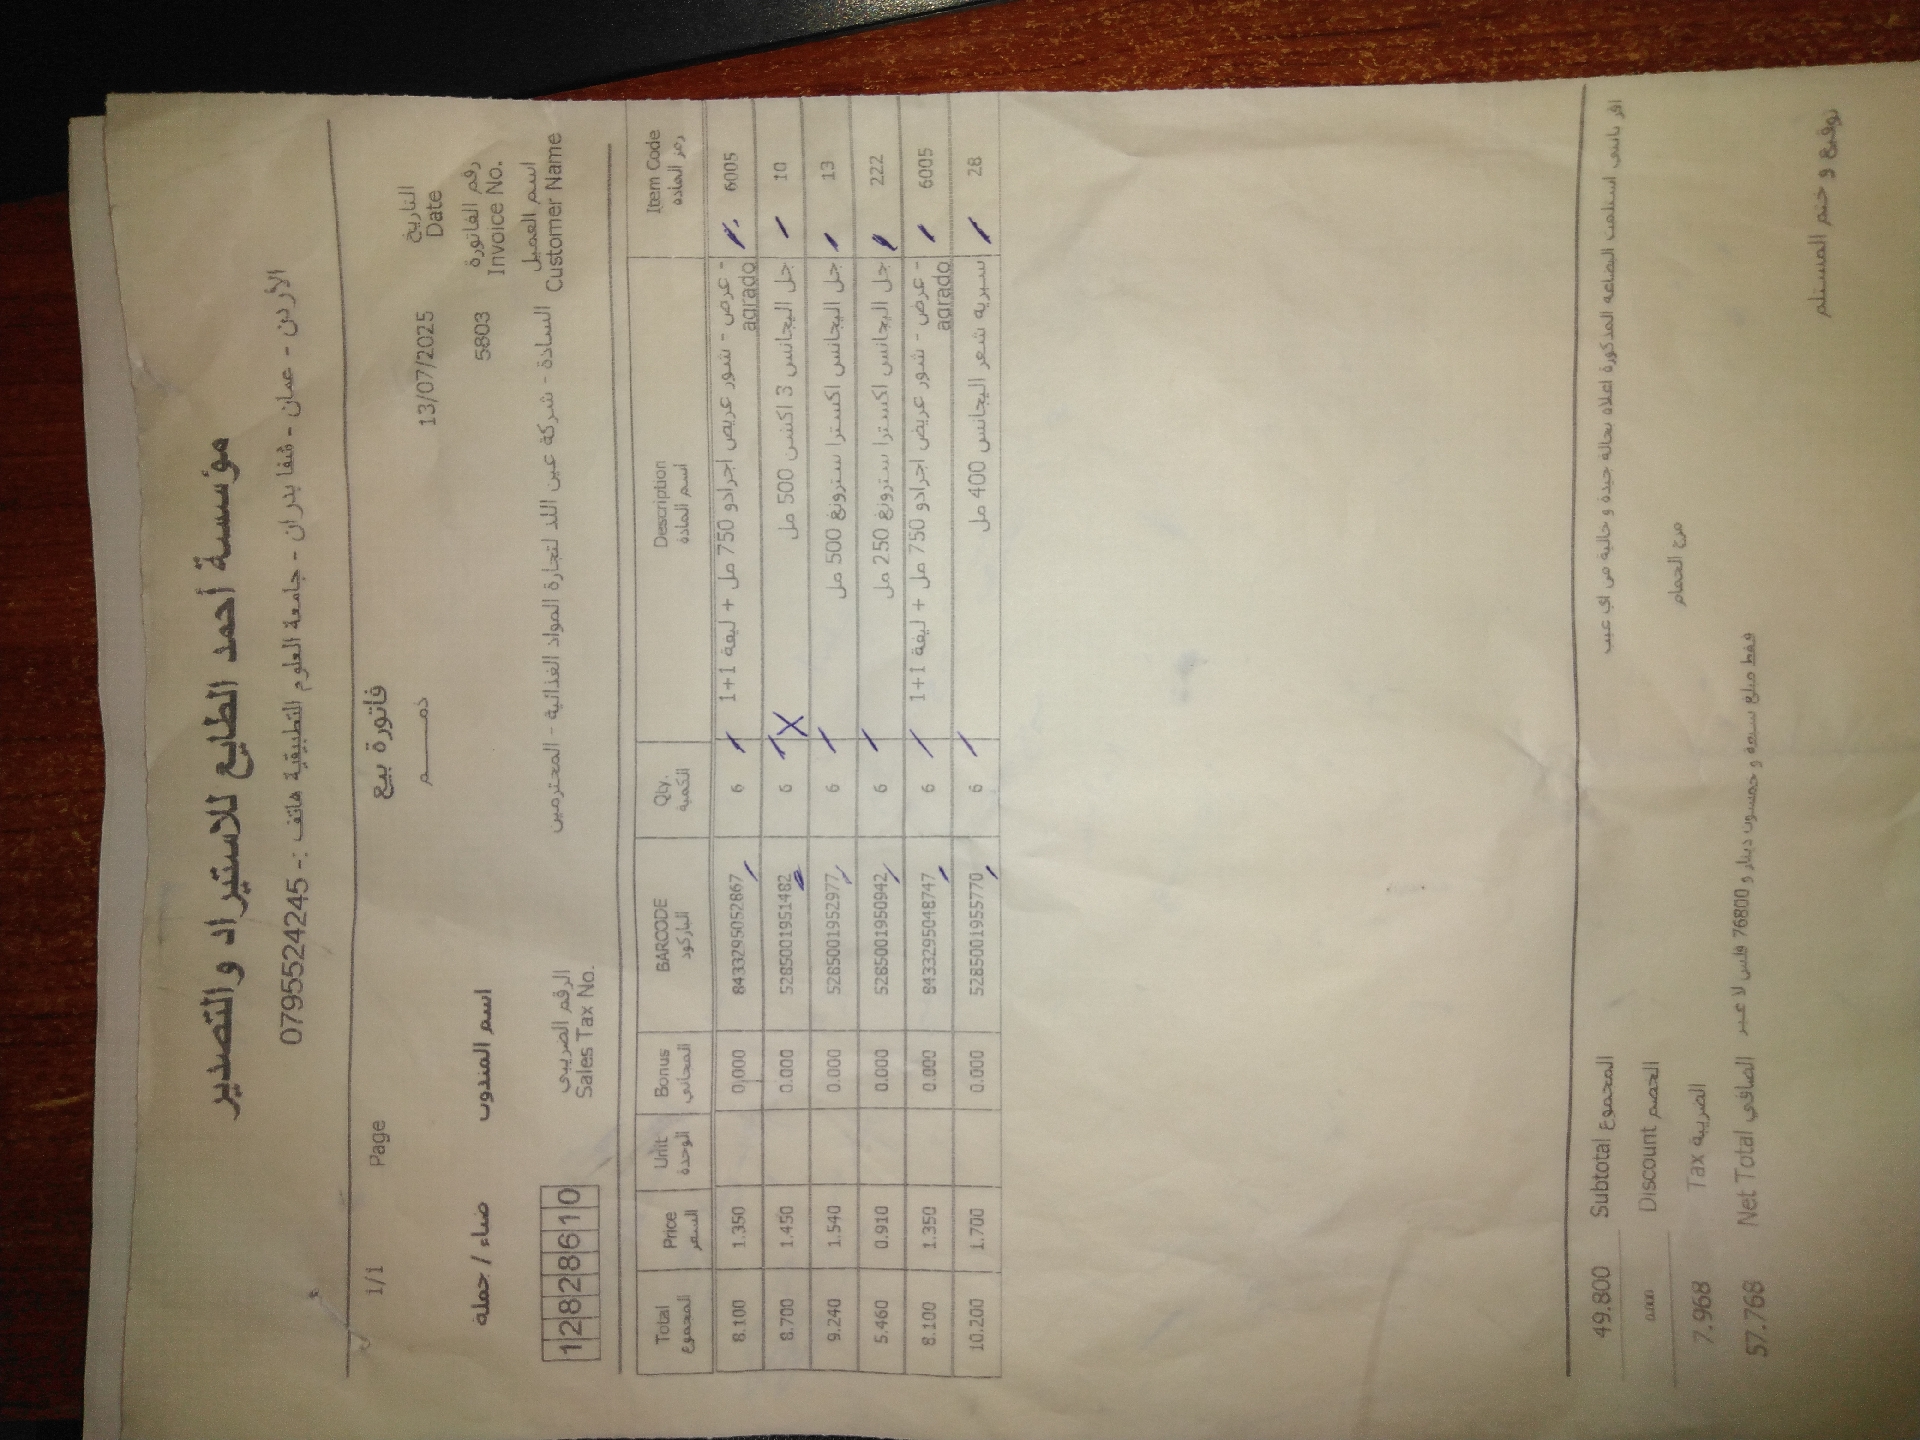 مؤسسة أحمد الطايع للاستيراد والتصدير
الأردن - عمان - شفا بدران - جامعة العلوم التطبيقية هاتف :- 0795524245
فاتورة بيع
1/1 Page
ذمــــــم
التاريخ
Date
13/07/2025
رقم الفاتورة
Invoice No.
5803
اسم المندوب
ضياء / حملة
اسم العميل
Customer Name
السادة - شركة عين اللد لتجارة المواد الغذائية - المحترمين
الرقم الضريبي
Sales Tax No.
12828610
Item Code رمز المادة Description اسم المادة Qty. الكمية BARCODE الباركود Bonus المجاني Unit الوحدة Price السعر Total المجموع
6005 عرض - شور عريض اجرادو 750 مل + ليفة 1+1 - agrado 6 8433295052867 0.000 1.350 8.100
10 جل اليجانس 3 اكشن 500 مل 6 5285001951482 0.000 1.450 8.700
13 جل اليجانس اكسترا سترونغ 500 مل 6 5285001952977 0.000 1.540 9.240
222 جل اليجانس اكسترا سترونغ 250 مل 6 5285001950942 0.000 0.910 5.460
6005 عرض - شور عريض اجرادو 750 مل + ليفة 1+1 - agrado 6 8433295048747 0.000 1.350 8.100
28 سبريه شعر اليجانس 400 مل 6 5285001955770 0.000 1.700 10.200
اقر بانني استلمت البضاعة المذكورة اعلاه بحالة جيدة و خالية من اي عيب
49.800 Subtotal المجموع
مرج الحمام
0.000 Discount الخصم
7.968 Tax الضريبة
57.768 Net Total الصافي فقط مبلغ سبعة و خمسون دينار و 76800 فلس لا غير
توقيع و ختم المستلم